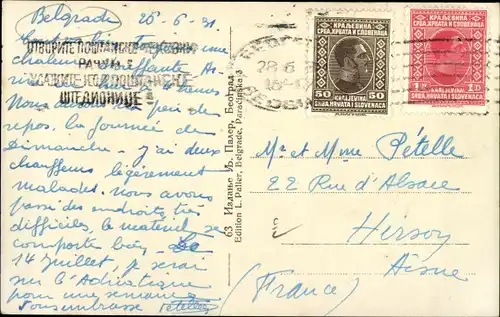 Belgrade 28-6-31
ОТВОРИТЕ ПОШТАНСКО ЧЕКОВНИ
РАЧУН
УЛАЖИТЕ КОД ПОШТАНСКЕ
ШТЕДИОНИЦЕ
une
chaleur étouffante
Nous
repos. la journée de
Dimanche - j'ai deux
chauffeurs légèrement
malades. Nous avons
passé des endroits très
difficiles, le matériel se
comporte bien. Le
14 Juillet, je serai
sur l'Adriatique
pour une semaine
Vous embrasse Pételle
63 Издање Љ. Палер, Београд
Edition L. Paller, Belgrade, Paraćinska 3
КРАЉЕВИНА
СРБА, ХРВАТА И СЛОВЕНАЦА
50 50
KRALJEVINA
SRBA, HRVATA I SLOVENACA
КРАЉЕВИНА
СРБА, ХРВАТА И СЛОВЕНАЦА
1 Д 1 D
KRALJEVINA
SRBA, HRVATA I SLOVENACA
28 6
Mr et Mme Pételle
22 Rue d'Alsace
Hirson
Aisne
(France)